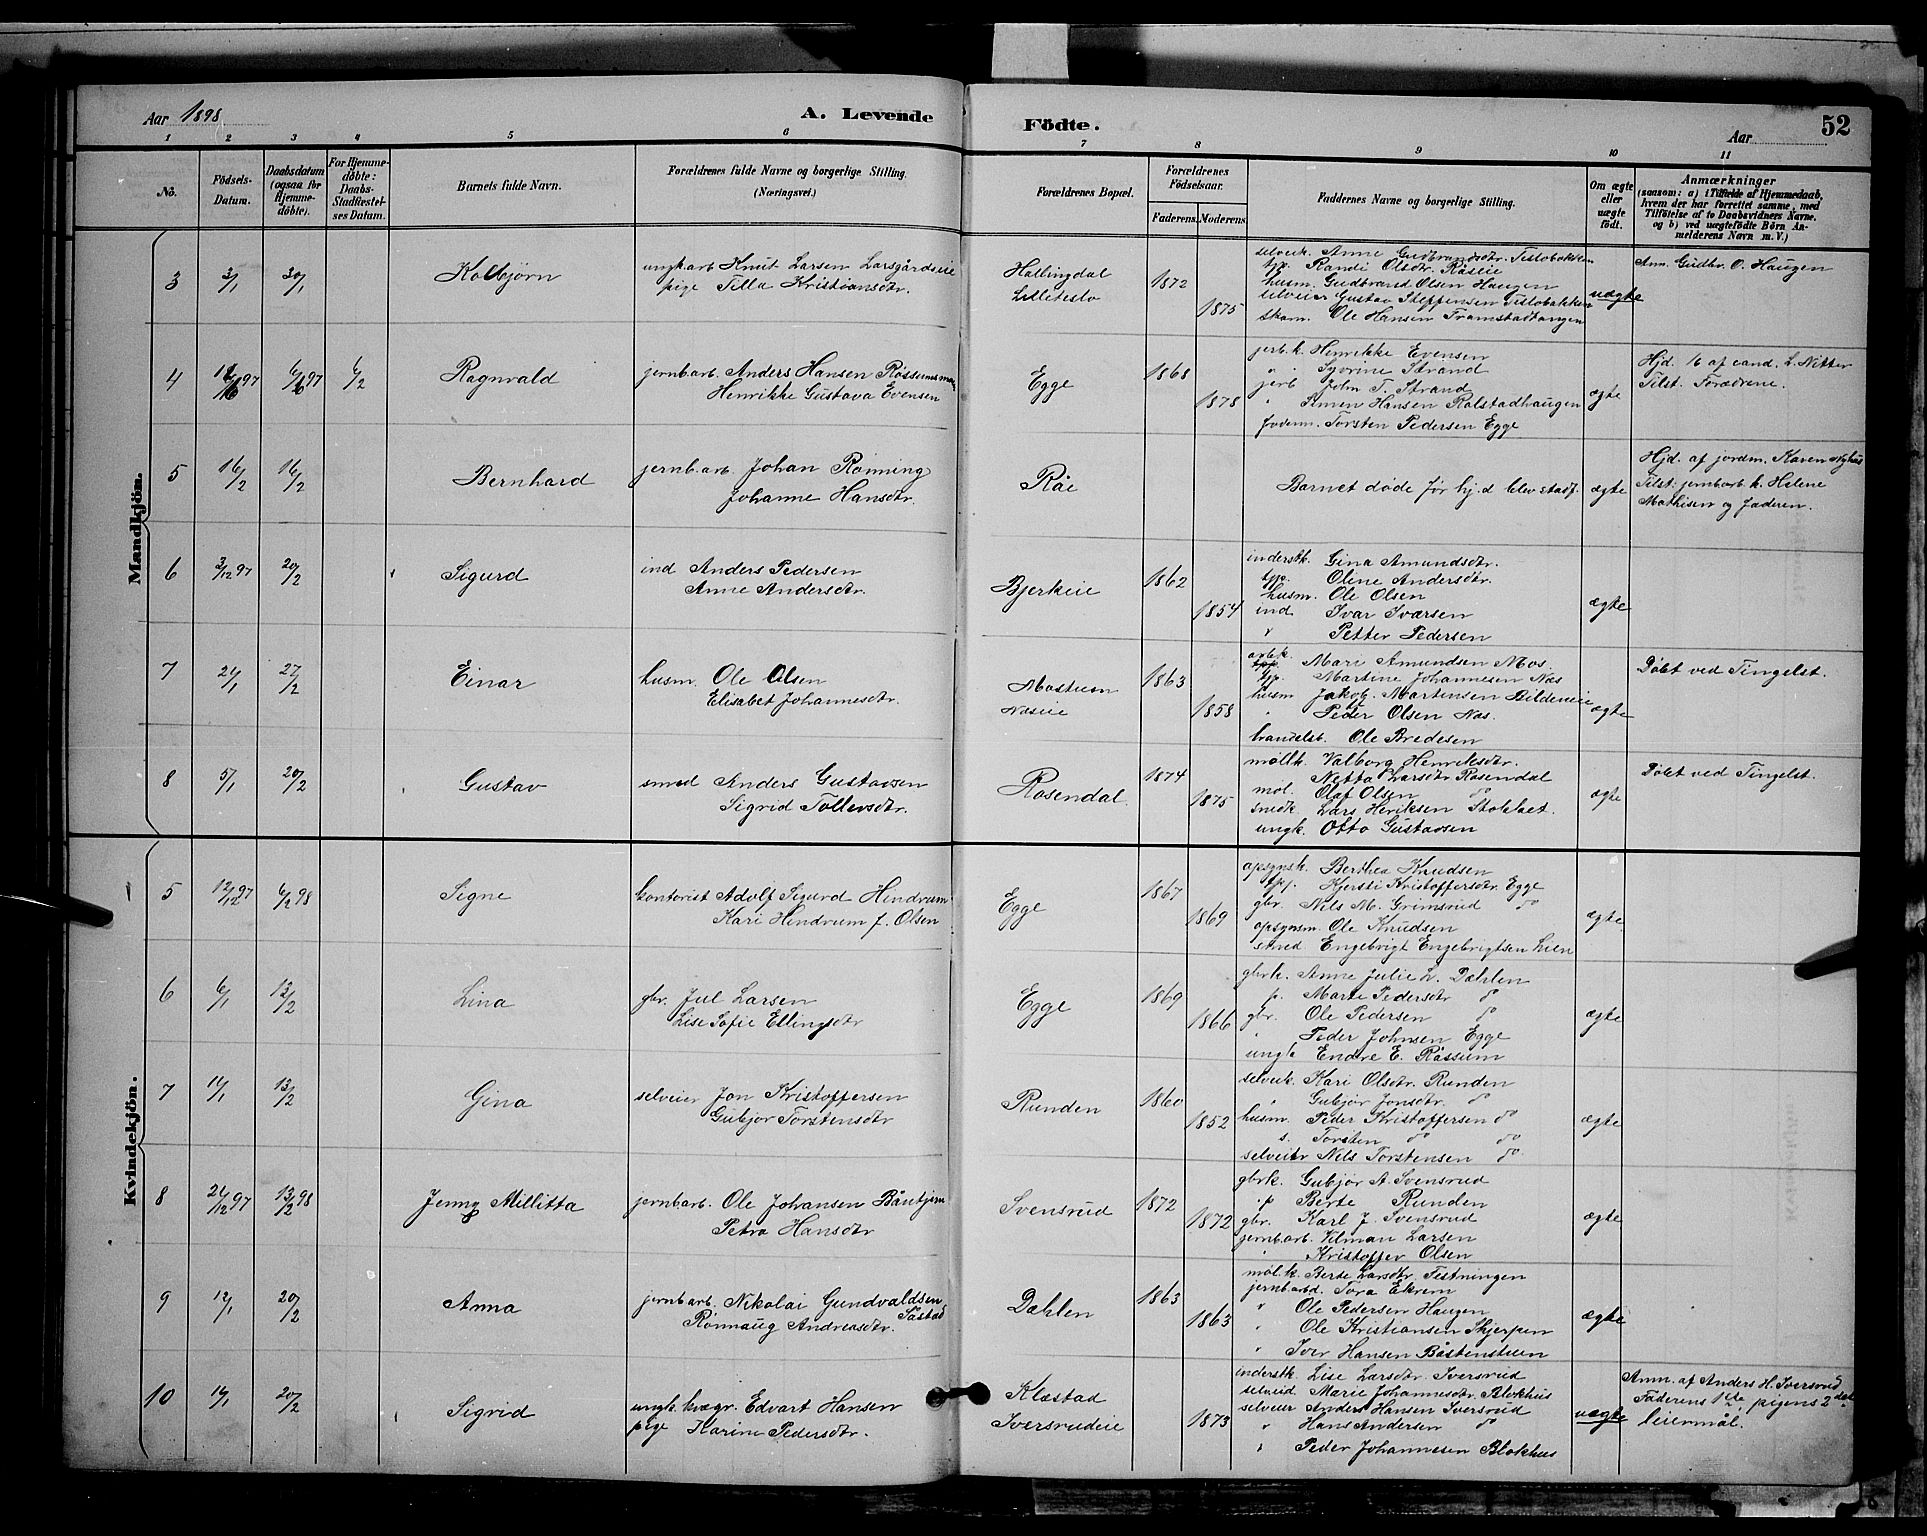 Aar 1898
A. Levende
Födte.
Aar
52
1 2 3 4 5 6 7 8 9 10 11
No.
Födsels-Datum.
Daabsdatum (ogsaa for Hjemme-döbte).
For Hjemme-döbte: Daabs-Stadfæstel-ses Datum.
Barnets fulde Navn.
Forældrenes fulde Navne og borgerlige Stilling. (Næringsvei.)
Forældrenes Bopæl.
Forældrenes Födselsaar.
Faderens. Moderens.
Faddernes Navne og borgerlige Stilling.
Om ægte eller uægte födt.
Anmærkninger
(saasom: a) i Tilfælde af Hjemmedaab,
hvem der har forrettet samme, med
Tilföielse af to Daabsvidners Navne,
og b) ved uægtefödte Börn An-
melderens Navn m. V.)
Mandkjön.
3 3/1 30/1 Kolbjørn
ungkarb Knut Larsen Larsgårdseie
pige Tilla Kristiansdtr.
Hallingdal
Lilleteslo
1872
1875
selveik. Anne Gudbrandsdtr. Teslobakken
tjp. Randi Olsdtr. Råseie
husm. Gudbrand Olsen Haugen
selveier Gustav Steffensen Teslobakken
skom. Ole Hansen Framstadtangen
uægte
Anm. Gudbr. O. Haugen
4 97 97 6/2 Ragnvald
jernbarb. Anders Hansen
Henrikke Gustava Evensen
Egge
1868
1878
jerb.k. Henrikke Evensen
" " Syverine Strand
jerb John T. Strand
" Simen Hansen Rolstadhaugen
Jordem. Torsten Pedersen Egge
ægte
Hjd. af cand. L. Nitter
Tilst. Forældrene.
5 16/2 16/2 Bernhard
jernb.arb. Johan Rönning
Johanne Hansdtr.
Råe
Barnet døde før hj.d blev stadf.
ægte
Hjd. af jordm. Karen Nyhus
Tilst. jernbarb.k. Helene
Mathisen og Faderen.
6 3/12 97 20/2 Sigurd
ind Anders Pedersen
Anne Andersdtr.
Bjerkeie
1862
1854
inderstk. Gina Amundsdtr.
tjp. Olene Andersdtr.
husm. Ole Olsen
ind Ivar Ivarsen
" Petter Pedersen
ægte
7 24/1 27/2 Einar
husm. Ole Olsen
Elisabet Johannesdtr.
Mostuen
Næseie
1863
1858
arbk. Mari Amundsen Mos.
tjp. Martine Johannesen Næs
husm Jakob Martinsen Bildeneie
" Peder Olsen Næs.
handelsb. Ole Bredesen
ægte
Døbt ved Tingelst.
8 5/1 20/2 Gustav
smed Anders Gustavsen
Sigrid Tollevsdtr.
Rosendal.
1874
1875
møllk. Valborg Henriksdtr.
Netta Larsdtr Rosendal
møl. Olaf Olsen do
smedk Lars Henriksen
ungk. Otto Gustavsen
ægte
Døbt ved Tingelst.
Kvindekjön.
5 12/12 97 6/2 98 Signe
kontorist Adolf Sigurd Hindrum
Kari Hindrum f. Olsen
Egge
1867
1869
opsynsk. Berthea Knudsen
tjp. Kjersti Kristoffersdtr. Egge
gbr. Nils M. Grimsrud do
opsynsm. Ole Knudsen
smed Engebrigt Engebrigtsen Lien
ægte
6 6/1 13/2 Lina
gbr. Jul Larsen
Lise Sofie Ellingsdtr
Egge
1869
1866
gbrk. Anne Julie L. Dæhlen
p. Marte Pedersdtr do
gbr. Ole Pedersen do
" Peder Johnsen Egge
ungk Endre E. Råssum
ægte
7 14/1 13/2 Gina
selveier Jon Kristoffersen
Gubjør Torstensdtr
Runden
1860
1852
selveik. Kari Olsdtr. Runden
" Gubjør Jonsdtr. do
husm. Peder Kristoffersen do
s. Torsten do do
selveier Nils Torstensen do
ægte
8 24/12 97 13/2 98 Jenny Millitta
jernb.arb. Ole Johansen
Petra Hansdtr
Svensrud
1872
1872
gbrk. Gubjør A. Svensrud
p Berte Runden
gbr. Karl J. Svensrud
jernb.arb. Vilman Larsen
" Kristoffer Olsen
ægte
9 12/1 20/2 Anna
jernb.arb. Nikolai Gundvaldsen
Rönnaug Andreasdtr.
Dæhlen
1863
1863
møl.k. Berte Larsdtr. Testningen
jernb.arbd. Tora Ekrem
" Ole Pedersen Haugen
" Ole Kristiansen Skjerpen
" Iver Hansen Båstenstuen
ægte
10 14/1 20/2 Sigrid
ungk. kvægr. Edvart Hansen
pige Karine Pedersdtr.
Klæstad
Iversrudeie
1873
inderstk. Lise Larsdtr. Iversrud
selveid. Marie Johannesdtr. Blokhus
selveier Anders Hansen Iversrud
" Hans Andersen do
" Peder Johannesen Blokhus
uægte
Anm. af Anders H. Iversrud
Faderens 1ste pigens 2det
leiermål.